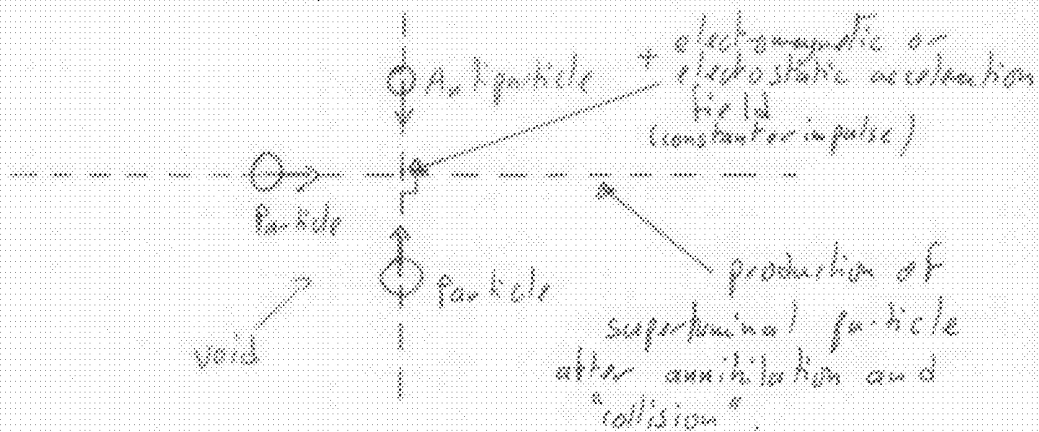 Antiparticle
+ electromagnetic or
electrostatic acceleration
field
(constant or impulse)
Particle
Particle
void
production of
superluminal particle
after annihilation and
"collision".